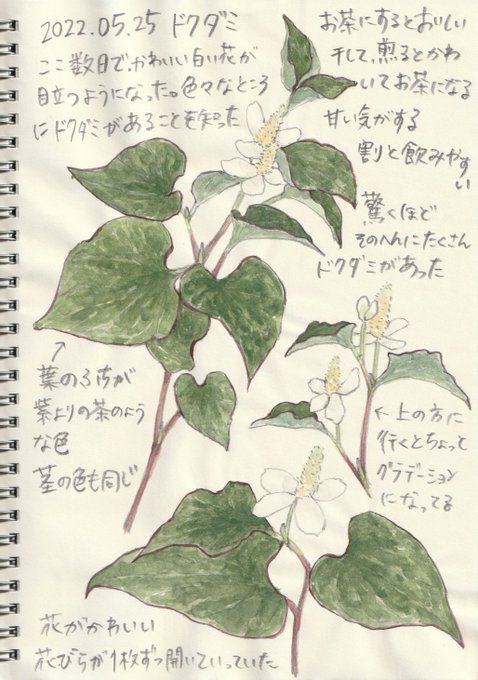 2022.05.25 ドクダミ
ここ数日で、かわいい白い花が
目立つようになった。色々なところ
にドクダミがあることを知った
お茶にするとおいしい
干して、煎るとかわ
いてお茶になる
甘い気がする
割と飲みやす
い
驚くほど
そのへんにたくさん
ドクダミがあった
葉のふちが
紫よりの茶のよう
な色
茎の色も同じ
←上の方に
行くとちょっと
グラデーション
になってる
花がかわいい
花びらが1枚ずつ開いていっていた